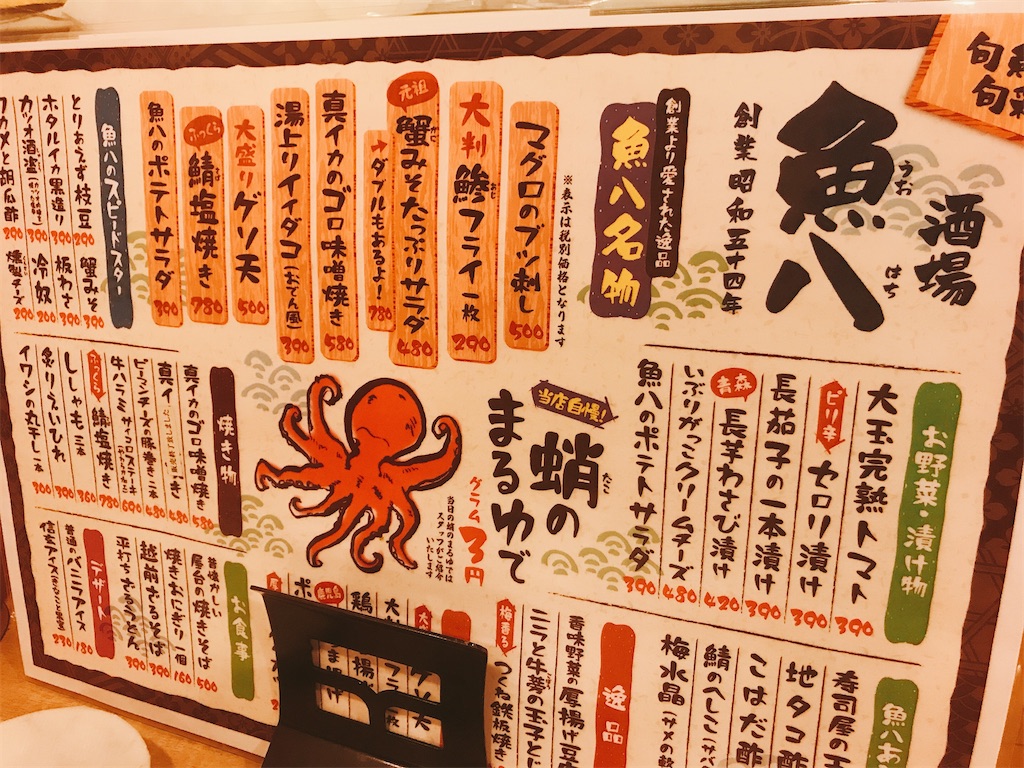 酒場
魚八
うおはち
創業昭和五十四年
創業より愛された逸品
魚八名物
※表示は税別価格となります
マグロのブツ刺し 500
大判鯵フライ一枚 290
あじ
元祖
蟹みそたっぷりサラダ 480
かに
→ダブルもあるよ! 780
真イカのゴロ味噌焼き 580
湯上りイイダコ(おでん風) 390
大盛りゲソ天 500
ふっくら
鯖塩焼き 780
さば
魚八のポテトサラダ 390
魚八のスピードスター
とりあえず枝豆 290
ホタルイカ黒造り 390
カツオ酒盗 390
ワカメと胡瓜酢 290
蟹みそ 390
板わさ 390
冷奴 200
燻製チーズ 290
お野菜・漬け物
大玉完熟トマト 390
ピリ辛
セロリ漬け 390
長茄子の一本漬け 390
青森
長芋わさび漬け 420
いぶりがっこクリームチーズ 480
魚八のポテトサラダ 390
当店自慢!
蛸のまるゆで
たこ
グラム3円
当日の蛸のまるゆでは
スタッフがご紹介
いたします
焼き物
真イカのゴロ味噌焼き 580
真イカ
480
ピーマンチーズの豚巻き二本 480
牛ハラミサイコロステーキ 690
ふっくら
鯖塩焼き 780
ししゃも三本 360
炙りえいひれ 390
イワシの丸干し一本 300
お食事
昔懐かしい
屋台の焼きそば 500
焼きおにぎり一個 160
越前ざるそば 390
平打ちざるうどん 390
デザート
普通のバニラアイス 180
信玄アイス 230
寿司屋の
地タコ酢
こはだ酢
鯖のへしこ
梅水晶
逸品
香味野菜の厚揚げ
ニラと牛蒡の玉子と
梅香る
つくね鉄板焼き